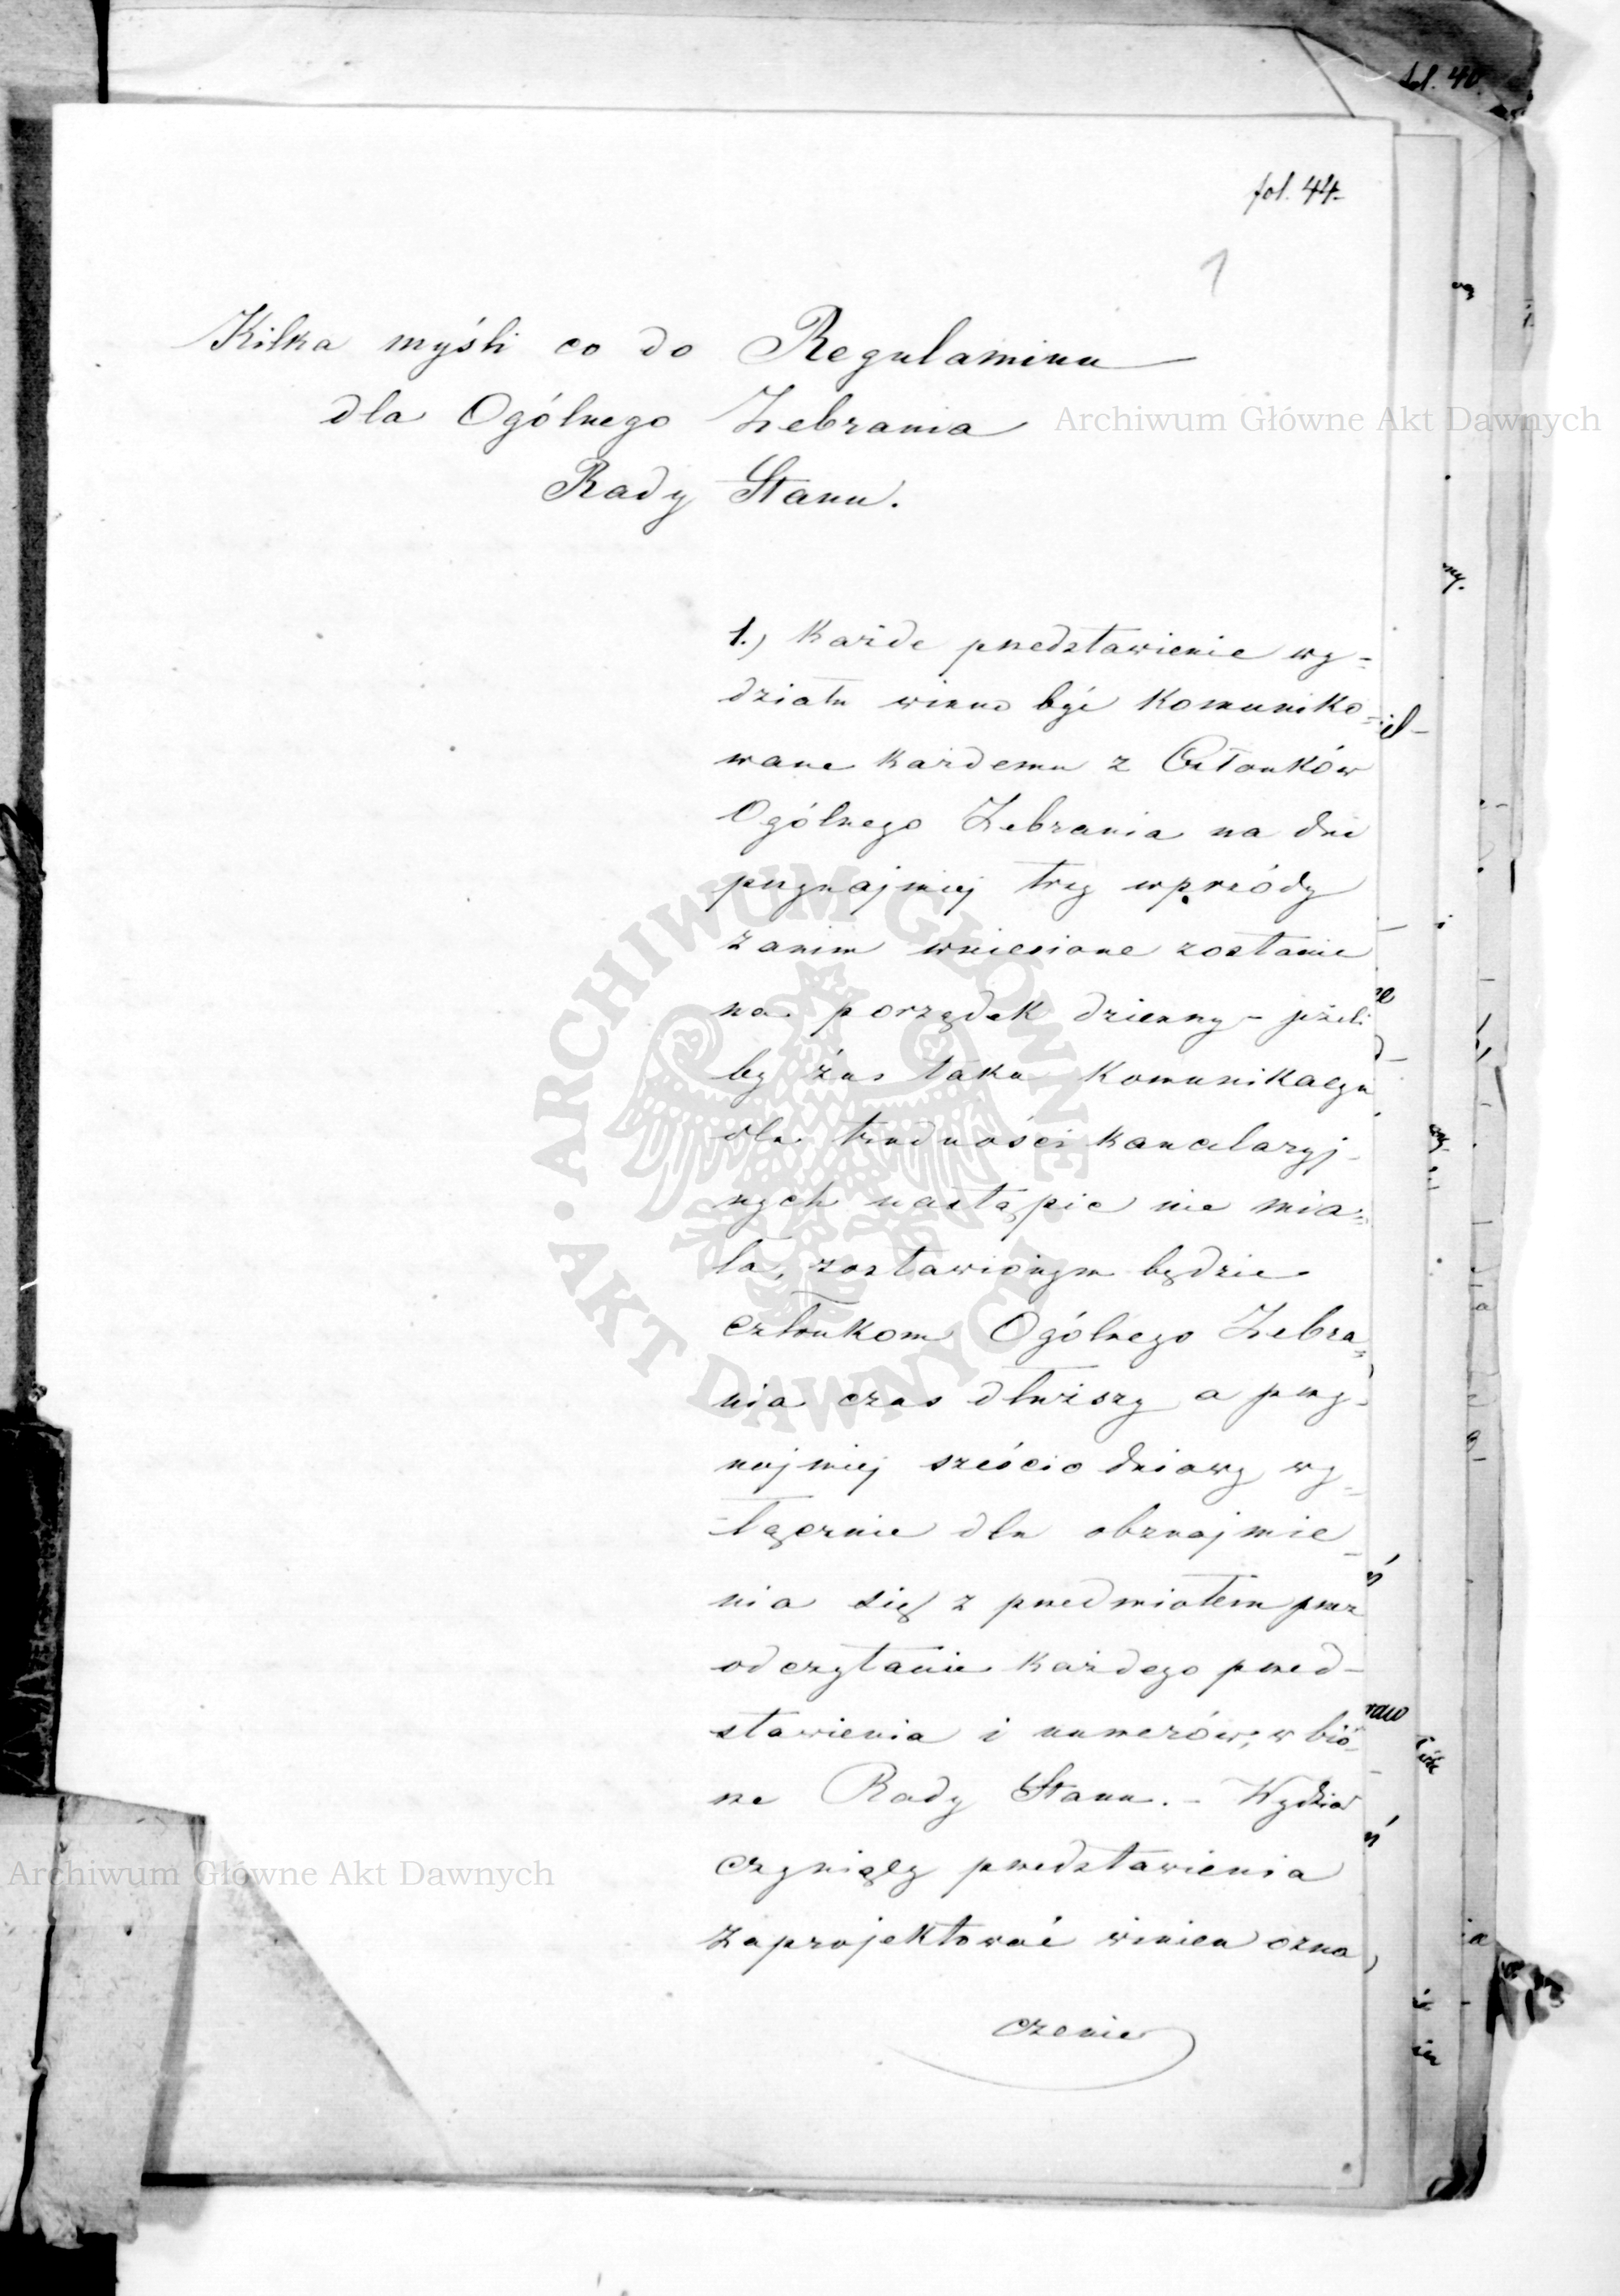 fol. 40.
fol. 44.
1
Kilka myśli co do Regulaminu
dla Ogólnego Zebrania
Archiwum Główne Akt Dawnych
Rady Stanu.
1.) Każde przedstawienie wy=
działu winno być komuniko=
wane każdemu z Członków
Ogólnego Zebrania na dni
przynajmniej trzy wprzódy
zanim wniesione zostanie
na porządek dzienny – jeżeli
by zaś taka komunikacya
dla trudności kancelaryj-
nych nastąpić nie mia=
ła, zostawionym będzie
członkom Ogólnego Zebra=
nia czas dłuższy a przy-
najmniej sześcio dniowy wy=
łącznie dla obznajmie-
nia się z przedmiotem przez
odczytanie każdego przed-
stawienia i numerów, w bió-
rze Rady Stanu. – Wydział
czyniący przedstawienia
zaprojektować winien ozna,
czenie
ARCHIWUM GŁÓWNE
AKT DAWNYCH
Archiwum Główne Akt Dawnych